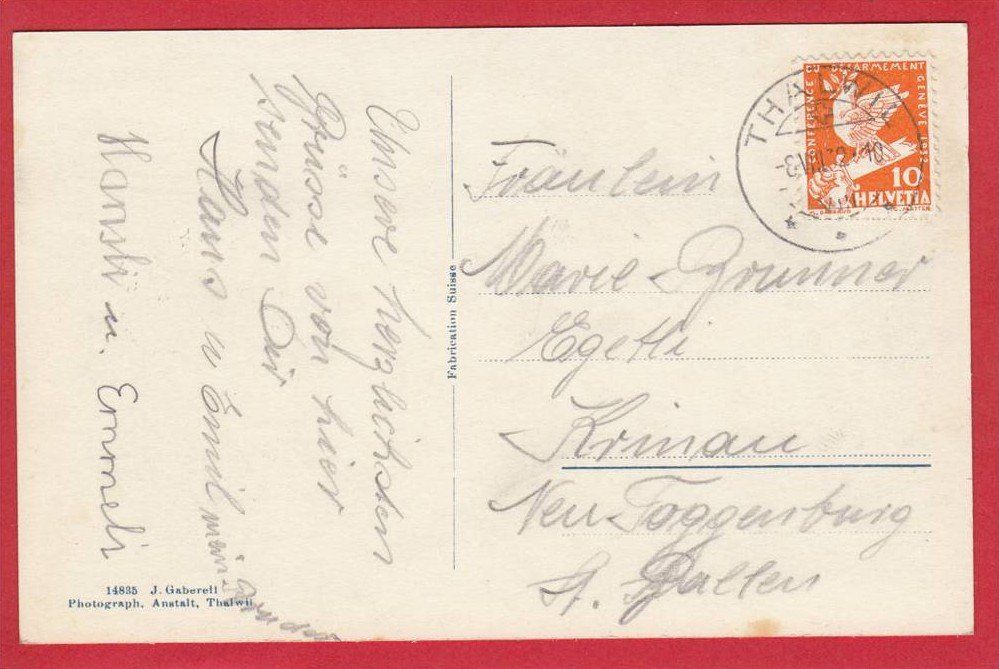 Unsere herzlichsten
Grüsse von hier
senden Dir
Hans u Emil
Hansli u. Emmeli
14835 J. Gaberell
Photograph. Anstalt, Thalwil
Fabrication Suisse
CONFERENCE DU DESARMEMENT GENEVE 1932
10
HELVETIA
THALWIL
-8.VIII.32.-10
Fräulein
Marie Brunner
Egetli
Krinau
Neu Toggenburg
St. Gallen